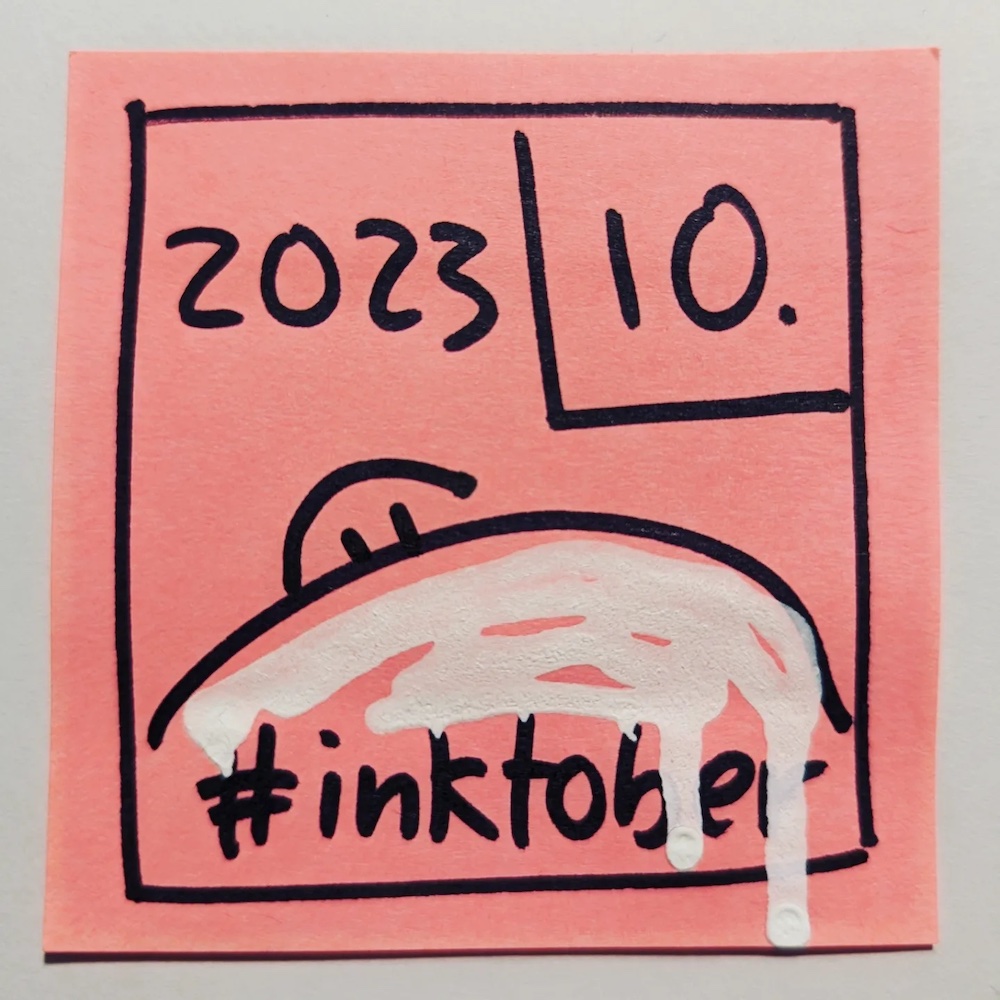 2023 10.
#inktober